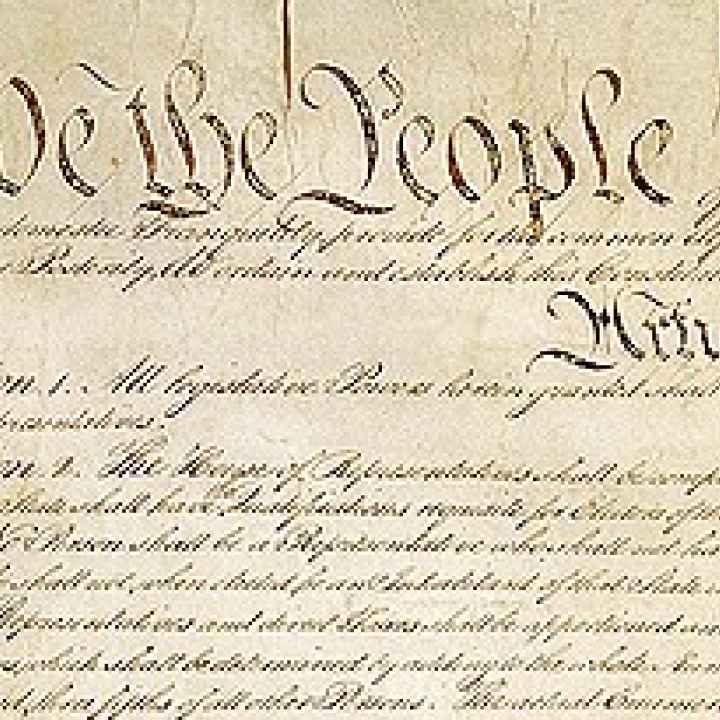 We the People
domestic Tranquility, provide for the common
Posterity, do ordain and establish this Constitution
Arti
on. 1. All legislative Powers herein granted shall
presentatives.
on. 2. The House of Representatives shall be comp
State shall have Qualifications requisite for Electors of
No Person shall be a Representative who shall not ha
shall not, when elected, be an Inhabitant of that State
Representatives and direct Taxes shall be apportioned
which shall be determined by adding to the whole Num
three fifths of all other Persons. The actual Enume